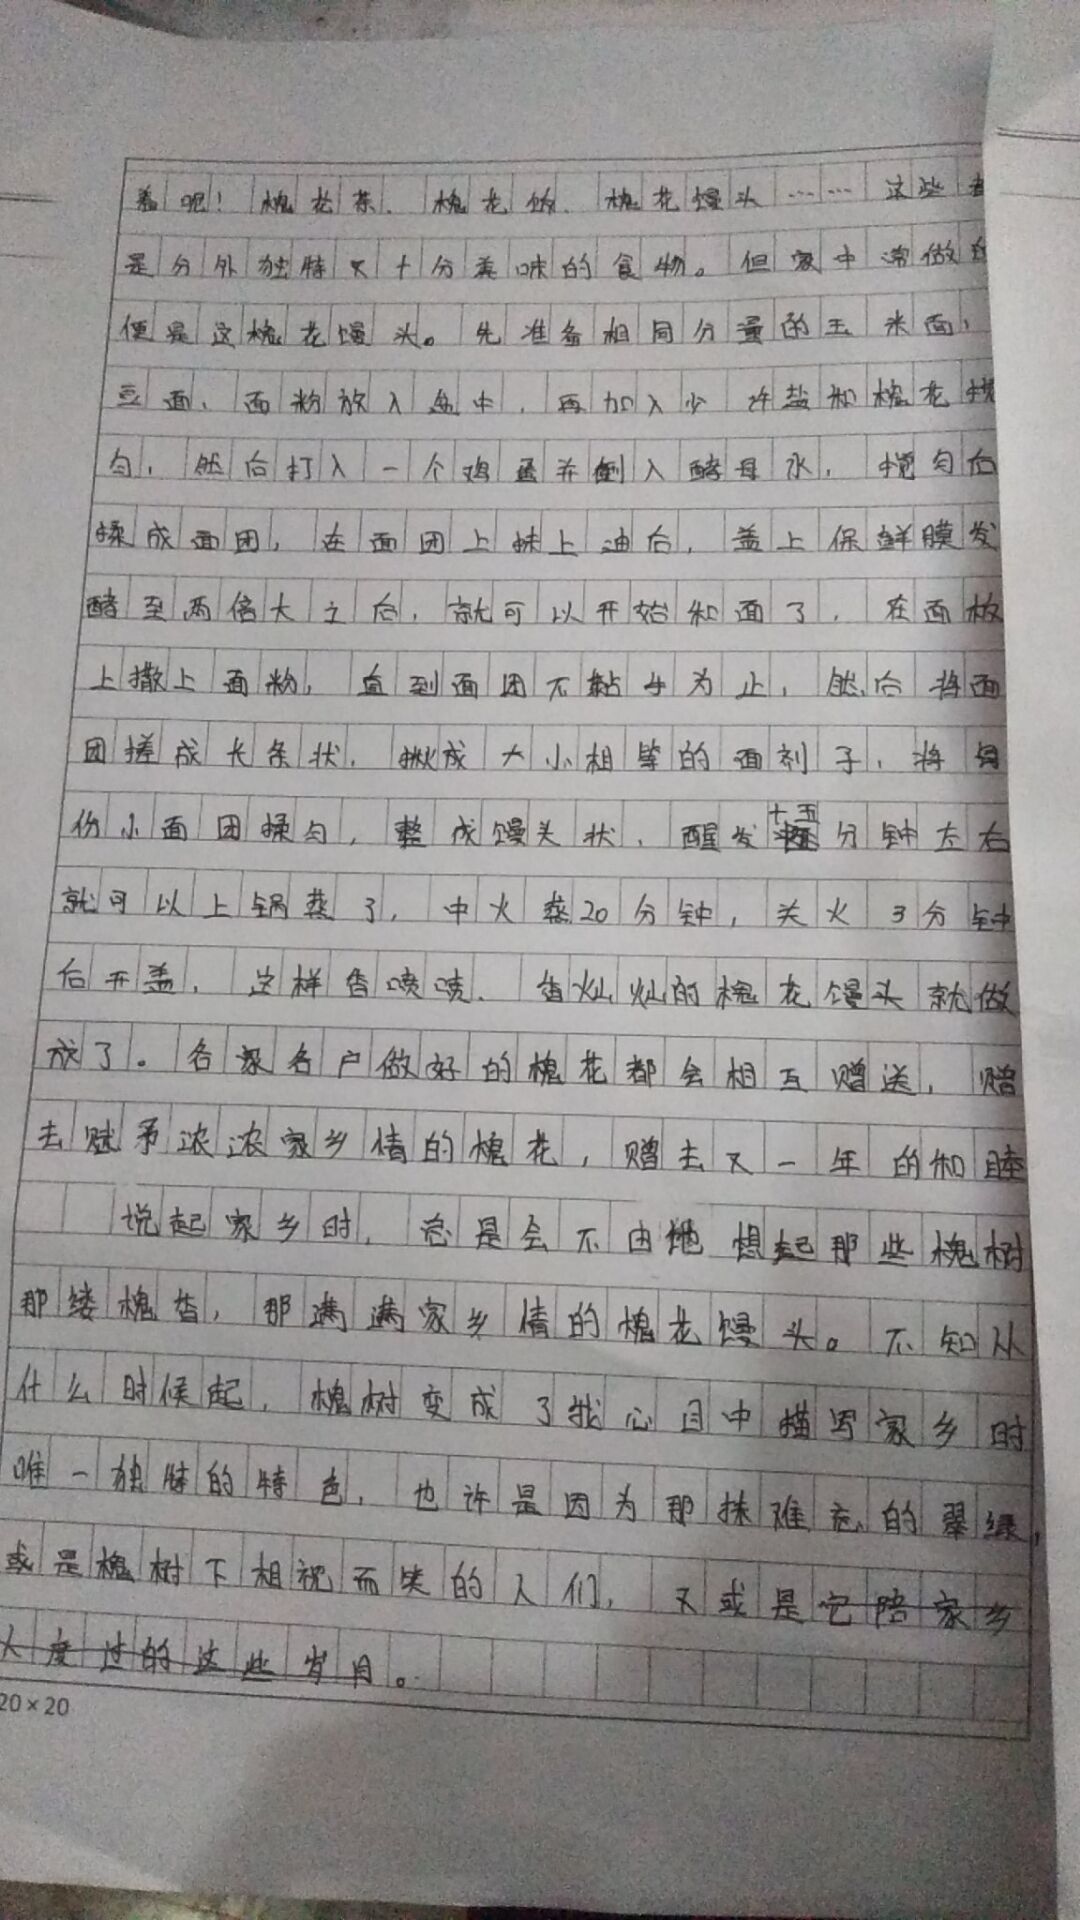 着呢！槐花茶、槐花饭、槐花馒头……这些都
是分外独特又十分美味的食物。但家中常做的
便是这槐花馒头。先准备相同分量的玉米面，
豆面、面粉放入盆中，再加入少许盐和槐花搅
匀，然后打入一个鸡蛋并倒入酵母水，搅匀后
揉成面团，在面团上抹上油后，盖上保鲜膜发
酵至两倍大之后，就可以开始和面了，在面板
上撒上面粉，直到面团不黏手为止，然后将面
团搓成长条状，揪成大小相等的面剂子，将每
份小面团揉匀，整成馒头状，醒发十五分钟左右
就可以上锅蒸了，中火蒸20分钟，关火3分钟
后开盖，这样香喷喷、香灿灿的槐花馒头就做
成了。各家各户做好的槐花都会相互赠送，赠
去赋予浓浓家乡情的槐花，赠去又一年的和睦
说起家乡时，总是会不由地想起那些槐树
那缕槐香，那满满家乡情的槐花馒头。不知从
什么时候起，槐树变成了我心目中描写家乡时
唯一独特的特色，也许是因为那抹难忘的翠绿，
或是槐树下相视而笑的人们，又或是它陪家乡
人度过的这些岁月。
20×20